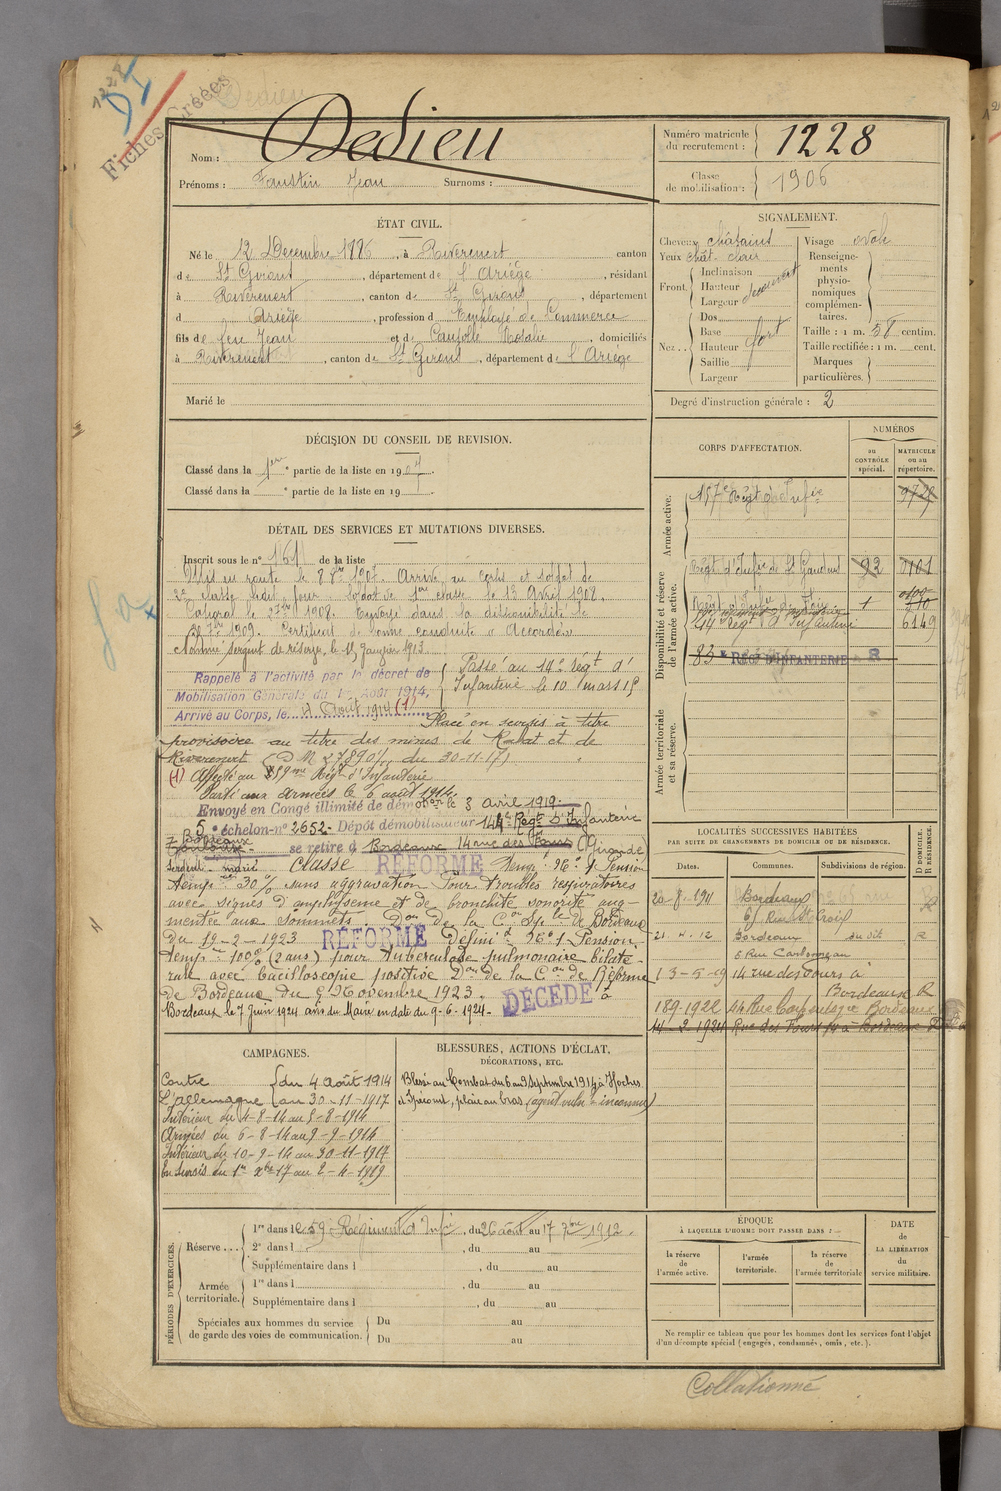 1228
DI
Fiches Créées
Dedieu
Nom : Dedieu
Prénoms : Faustin Jean Surnoms :
Numéro matricule du recrutement : 1228
Classe de mobilisation : 1906
ÉTAT CIVIL.
Né le 12 Décembre 1886, à Rivèrenert canton
de St Girons, département de l'Ariège, résidant
à Rivèrenert, canton de St Girons, département
d Ariège, profession d Employé de Commerce
fils de feu Jean et de Rosalie, domiciliés
à Rivèrenert, canton de St Girons, département de l'Ariège
Marié le
SIGNALEMENT.
Cheveux châtains
Yeux chât. clair
Front. Inclinaison
Hauteur découvert
Largeur
Nez.. Dos
Base
Hauteur fort
Saillie
Largeur
Visage ovale
Renseignements physionomiques complémentaires.
Taille : 1 m. 58 centim.
Taille rectifiée : 1 m. cent.
Marques particulières.
Degré d'instruction générale : 2
DÉCISION DU CONSEIL DE REVISION.
Classé dans la 1ère partie de la liste en 1907.
Classé dans la e partie de la liste en 19
CORPS D'AFFECTATION.
NUMÉROS
au CONTRÔLE spécial.
MATRICULE ou au répertoire.
Armée active.
Disponibilité et réserve de l'armée active.
Armée territoriale et sa réserve.
157e Régt d'Infie 9728
Régt d'Infie de St Gaudens 92 7101
1
144 Régt d'Infanterie 6149
83e RÉGT D'INFANTERIE R
DÉTAIL DES SERVICES ET MUTATIONS DIVERSES.
Inscrit sous le n° 161 de la liste
Mis en route le 8 8bre 1907. Arrivé au corps et soldat de
2e classe ledit jour. Soldat de 1ère classe le 13 Avril 1908.
Caporal le 1908. Envoyé dans la disponibilité le
1909. Certificat de bonne conduite "Accordé"
Nommé sergent de réserve, le 15 Janvier 1913.
Rappelé à l'activité par le décret de
Mobilisation Générale du 1er Août 1914,
Arrivé au Corps, le 4 Août 1914 (1)
Passé au 14e Régt d'
Infanterie le 10 mars 15
Placé en sursis à titre
provisoire au titre des mines de et de
Rivèrenert (D M 27890 du 30-11-17)
(1) Affecté au 59me Régt d'Infanterie
Parti aux armées le 6 août 1914.
Envoyé en Congé illimité de démobon le 3 avril 1919.
5e échelon-n° 2652- Dépôt démobilisateur 144e Régt d'Infanterie
se retire à Bordeaux 14 rue des Fours (Gironde)
Bordeaux
Toulouse
Classé RÉFORMÉ Temp. No 1 Pension
tempre 30% sans aggravation Pour troubles respiratoires
avec signes d'emphysème et de bronchite sonorité aug-
mentée aux sommets. Don de la Con Sple de Bordeaux
du 19-2-1923 RÉFORMÉ Défini t No 1 Pension
tempre 100% (2 ans) pour tuberculose pulmonaire bilaté-
rale avec bacilloscopie positive Don de la Con de Réforme
de Bordeaux du 5 Novembre 1923. DÉCÉDÉ à
Bordeaux le 7 Juin 1924 avis du Maire en date du 9-6-1924.
LOCALITÉS SUCCESSIVES HABITÉES
PAR SUITE DE CHANGEMENTS DE DOMICILE OU DE RÉSIDENCE.
Dates. Communes. Subdivisions de région. D. DOMICILE. R. RÉSIDENCE.
20-8-1911 Bordeaux R
Rue Ste Croix
21.4.12 Bordeaux du dit R
6 Rue Carbonneau
13-5-19 14 rue des Fours à
Bordeaux R
18-9-1922 Bordeaux
14-2-1924 Rue des Fours 14 à Bordeaux
CAMPAGNES.
Contre du 4 août 1914
L'allemagne au 30-11-1917
Intérieur du 4-8-14 au 5-8-1914
Armées du 6-8-14 au 9-9-1914
Intérieur du 10-9-14 au 30-11-1917
En Sursis du 1er Xbre 17 au 2-4-1919
BLESSURES, ACTIONS D'ÉCLAT,
DÉCORATIONS, ETC.
Blessé au Combat du 6 au 9 Septembre 1914 à
et , plaie au bras (agent vulnt inconnu)
PÉRIODES D'EXERCICES.
Réserve.... 1re dans le 59 Régiment d'Infie, du 26 août au 17 7bre 1912.
2e dans l , du au
Supplémentaire dans l , du au
Armée territoriale. 1re dans l , du au
Supplémentaire dans l , du au
Spéciales aux hommes du service de garde des voies de communication. Du au
Du au
ÉPOQUE
À LAQUELLE L'HOMME DOIT PASSER DANS :
la réserve de l'armée active.
l'armée territoriale.
la réserve de l'armée territoriale
DATE de LA LIBÉRATION du service militaire.
Ne remplir ce tableau que pour les hommes dont les services font l'objet
d'un décompte spécial (engagés, condamnés, omis, etc.).
Collationné